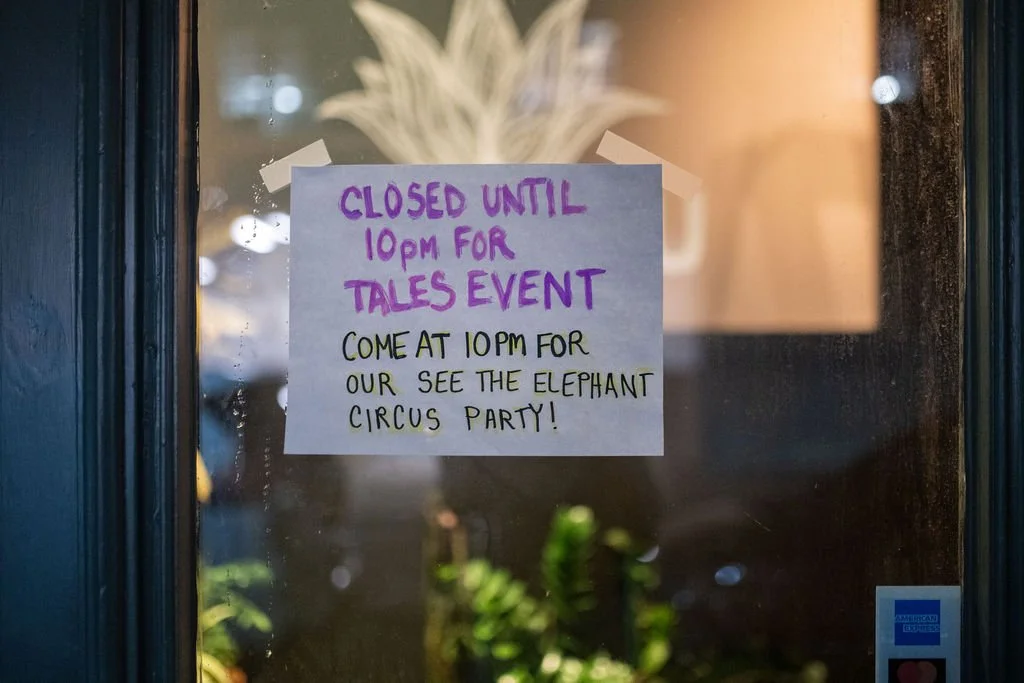 CLOSED UNTIL
10pm FOR
TALES EVENT
COME AT 10PM FOR
OUR SEE THE ELEPHANT
CIRCUS PARTY!
AMERICAN
EXPRESS